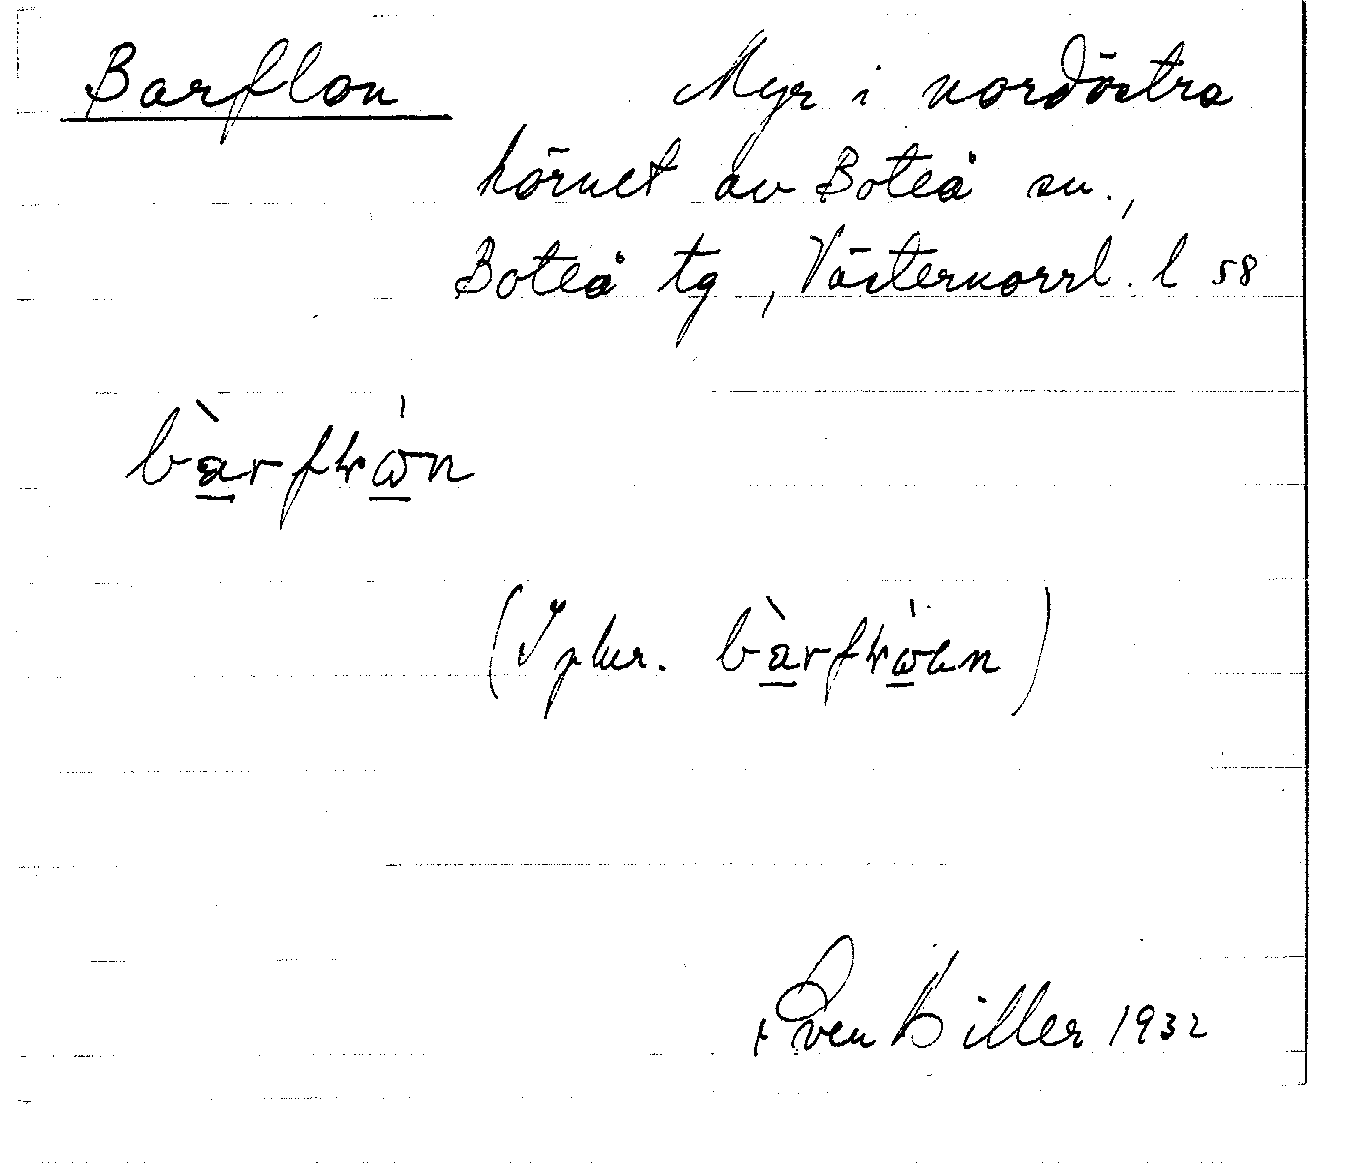 Barflon Myr i nordöstra
hörnet av Boteå sn.,
Boteå tg, Västernorrl. l 58
(I plur.
Sven Hiller 1932